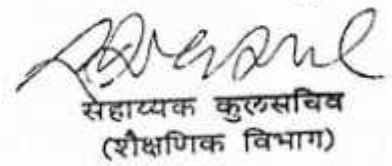 सहाय्यक कुलसचिव
(शैक्षणिक विभाग)